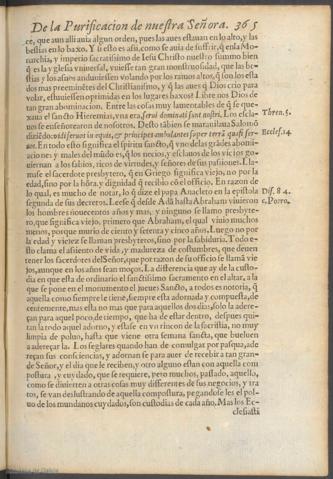 De la Purificacion de nuestra Señora. 365
ce, que aun alli auia algun orden, pues las aues estauan en lo alto, y las
bestias en lo baxo. Y si esto es assi, como se auia de suffrir, q̃ en la Mo-
narchia, y imperio sacratissimo de Iesu Christo nuestro summo bien
q̃ es la yglesia vniuersal, vuiesse tan gran monstruosidad, que las be-
stias y los asnos anduuiessen volando por los ramos altos, q̃ son los esta
dos mas preeminẽtes del Christianismo, y q̃ las aues q̃ Dios crio para
volar, estuuiessen oprimidas en los lugares baxos? Libre nos Dios de
tan gran abominacion. Entre las cosas muy lamentables de q̃ se que-
xaua el sancto Hieremias, vna era, serui dominati sunt nostri. Los escla-
Thren. 5.
uos se enseñorearon de nosotros. Desto tãbien se marauillaua Salomõ
diziẽdo: vidi seruos in equis, & principes ambulantes super terrã quasi ser-
Eccles. 14
uos. En todo esto significa el spiritu sancto, q̃ vno de las grãdes abomi
naciones y males del mũdo es, q̃ los necios, y esclauos de los vicios go-
uiernan a los sabios, ricos de virtudes, y señores de sus passiones. Lla-
mase el sacerdote presbytero, q̃ en Griego significa viejo, no por la
edad, sino por la hõra, y dignidad q̃ recibio cõ el officio. En razon de
lo qual, es mucho de notar, lo q̃ dize el papa Anacleto en la epistola
Dis. 84.
segunda de sus decretos. Leese q̃ desde Adã hasta Abraham viuieron
c. Porro.
los hombres nouecientos años y mas, y ninguno se llamo presbyte-
ro, que significa viejo, primero que Abraham, el qual viuio muchos
menos, porque murio de ciento y setenta y cinco años. Luego no por
la edad y viejez se llaman presbyteros, sino por la sabiduria. Todo e-
sto clama el assiento de vida, y madureza de costumbres, que deuen
tener los sacerdotes del Señor, que por razon de su officio se llamã vie
jos, aunque en los años sean moços. La differencia que ay de la custo-
dia en que esta de ordinario el sanctissimo sacramento en el altar, a la
que se pone en el monumento el jueues Sancto, a todos es notoria, q̃
aquella como siempre le tiene, siempre esta adornada y compuesta, de
centemente, mas esta no mas que para aquellos dos dias, solo la adere-
çan para aquel poco de tiempo, que ha de estar dentro, despues qui-
tan la todo aquel adorno, y estase en vn rincon de la sacristia, no muy
limpia de poluo, hasta que viene otra semana sancta, que bueluen
a adereçar la. Los seglares quando han de comulgar por pascua, ade
reçan sus consciencias, y adornan se para auer de recebir a tan gran-
de Señor, y el dia que le reciben, y otro alguno estan con aquella com
postura, y cuydado, que se requiere, pero muchos, passado, aquello,
como se diuierten a otras cosas muy differentes de sus negocios, y tra
tos, se van deslustrando de aquella compostura, pegandose les el pol-
uo de los mundanos cuydados, son custodias de cada año. Mas los Ec-
clesiasti